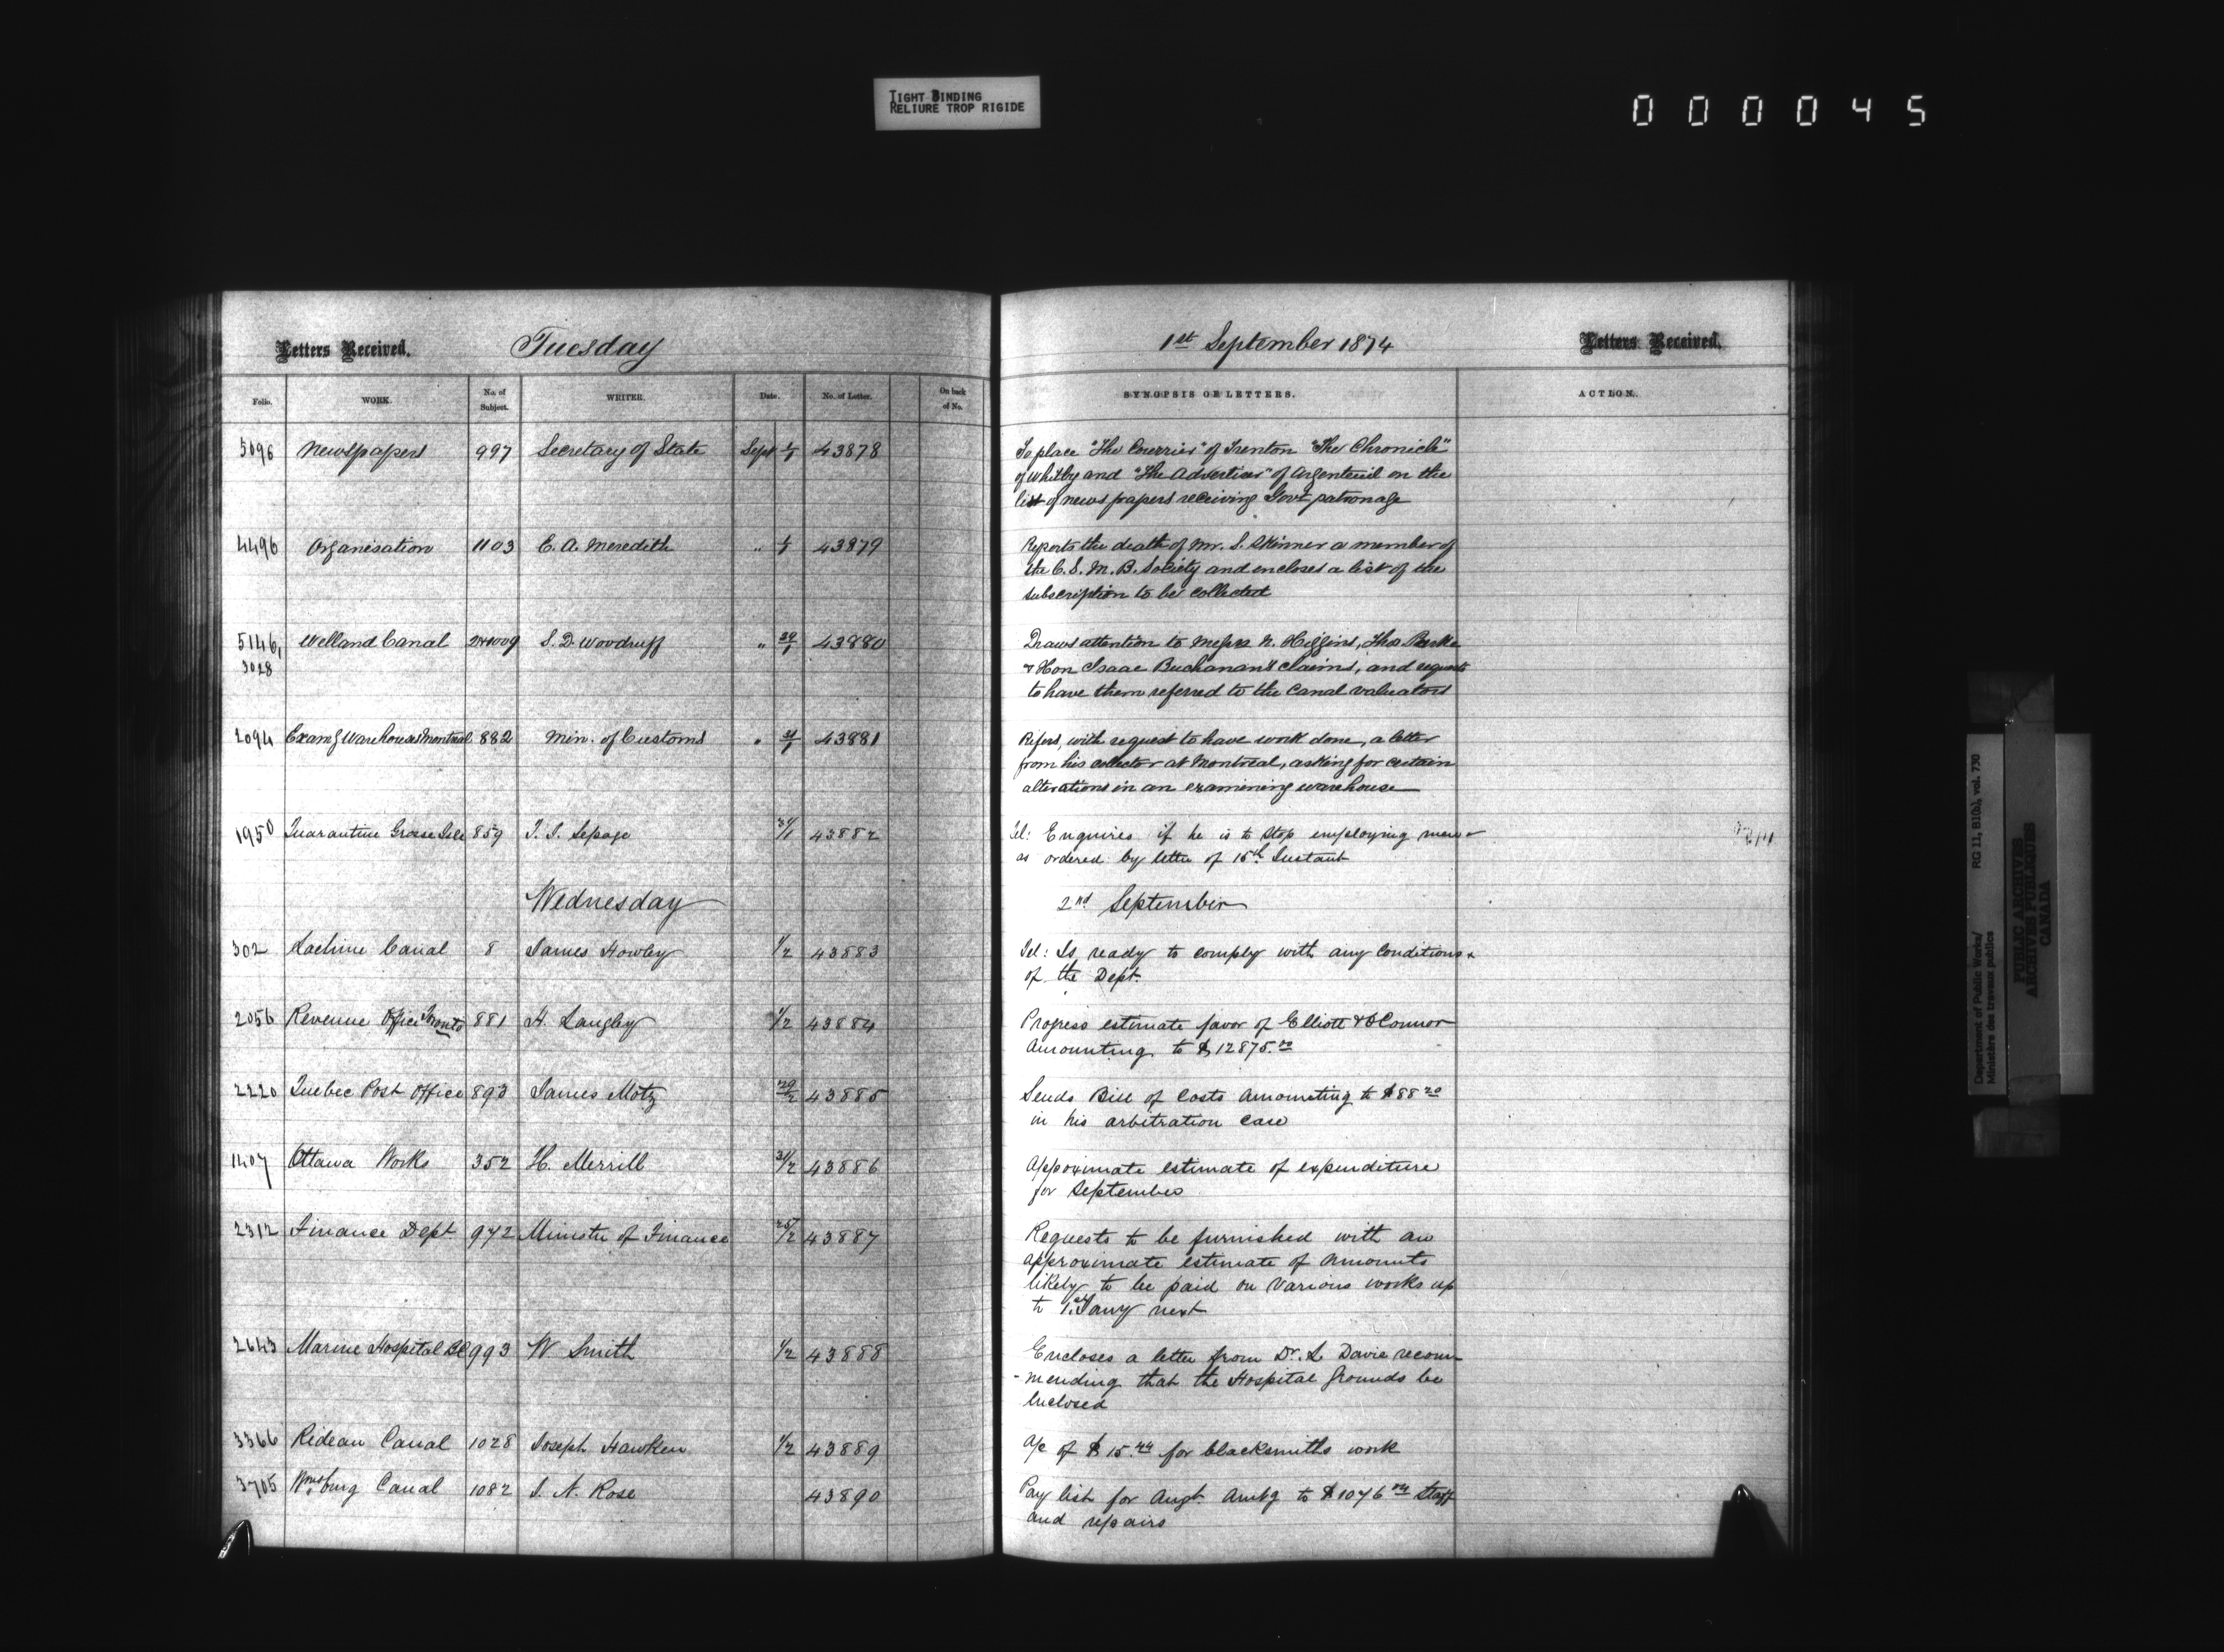 TIGHT BINDING
RELIURE TROP RIGIDE
000045
Letters Received. Tuesday
1st September 1874 Letters Received.
Folio. WORK. No. of Subject. WRITER. Date. No. of Letter. On back of No.
SYNOPSIS OF LETTERS. ACTION.
5096 Newspapers 997 Secretary of State Sept 1/1 43878
To place "The Courrier" of Trenton "The Chronicle"
of Whitby and "The Advertiser" of Argenteuil on the
list of news papers receiving Govt patronage
4496 Organisation 1103 E. A. Meredith " 1/1 43879
Reports the death of Mr. S. Skinner a member of
the C. S. M. B. Society and encloses a list of the
subscription to be collected
5146, Welland Canal S. D. Woodruff " 43880
3028
Draws attention to Messrs N. Higgins, Thos
& Hon Isaac Buchanan's claims, and requests
to have them referred to the Canal valuators
2094 Examg Warehouse Montreal 882 Min. of Customs " 31/1 43881
Refers, with request to have work done, a letter
from his collector at Montreal, asking for certain
alterations in an examining warehouse
1950 Quarantine Grosse Isle 859 T. S. Lepage 31/1 43882
Tel: Enquires if he is to stop employing men
as ordered by letter of 15th Instant
Wednesday
2nd September
302 Lachine Canal 8 James Howley 1/2 43883
Tel: Is ready to comply with any conditions
of the Dept.
2056 Revenue Office Toronto 881 H. Langley 1/2 43884
Progress estimate favor of Elliott & O'Connor
amounting to $12875.00
2220 Quebec Post Office 893 James Motz 29/2 43885
Sends Bill of Costs amounting to $88 20
in his arbitration case
1407 Ottawa Works 352 H. Merrill 31/2 43886
Approximate estimate of expenditure
for September
2312 Finance Dept 972 Minister of Finance 25/2 43887
Requests to be furnished with an
approximate estimate of amounts
likely to be paid on various works up
to 1st Jany next
2643 Marine Hospital BC 993 W. Smith 1/2 43888
Encloses a letter from Dr. L Davie recom-
-mending that the Hospital grounds be
enclosed
3366 Rideau Canal 1028 Joseph Hawken 1/2 43889
A/c of $15.44 for blacksmiths work
3705 Wmsburg Canal 1082 I. N. Rose 43890
Pay list for Augt. Amtg to $1076 staff
and repairs
Department of Public Works/
Ministère des travaux publics
RG 11, B1(b), vol. 730
PUBLIC ARCHIVES
ARCHIVES PUBLIQUES
CANADA